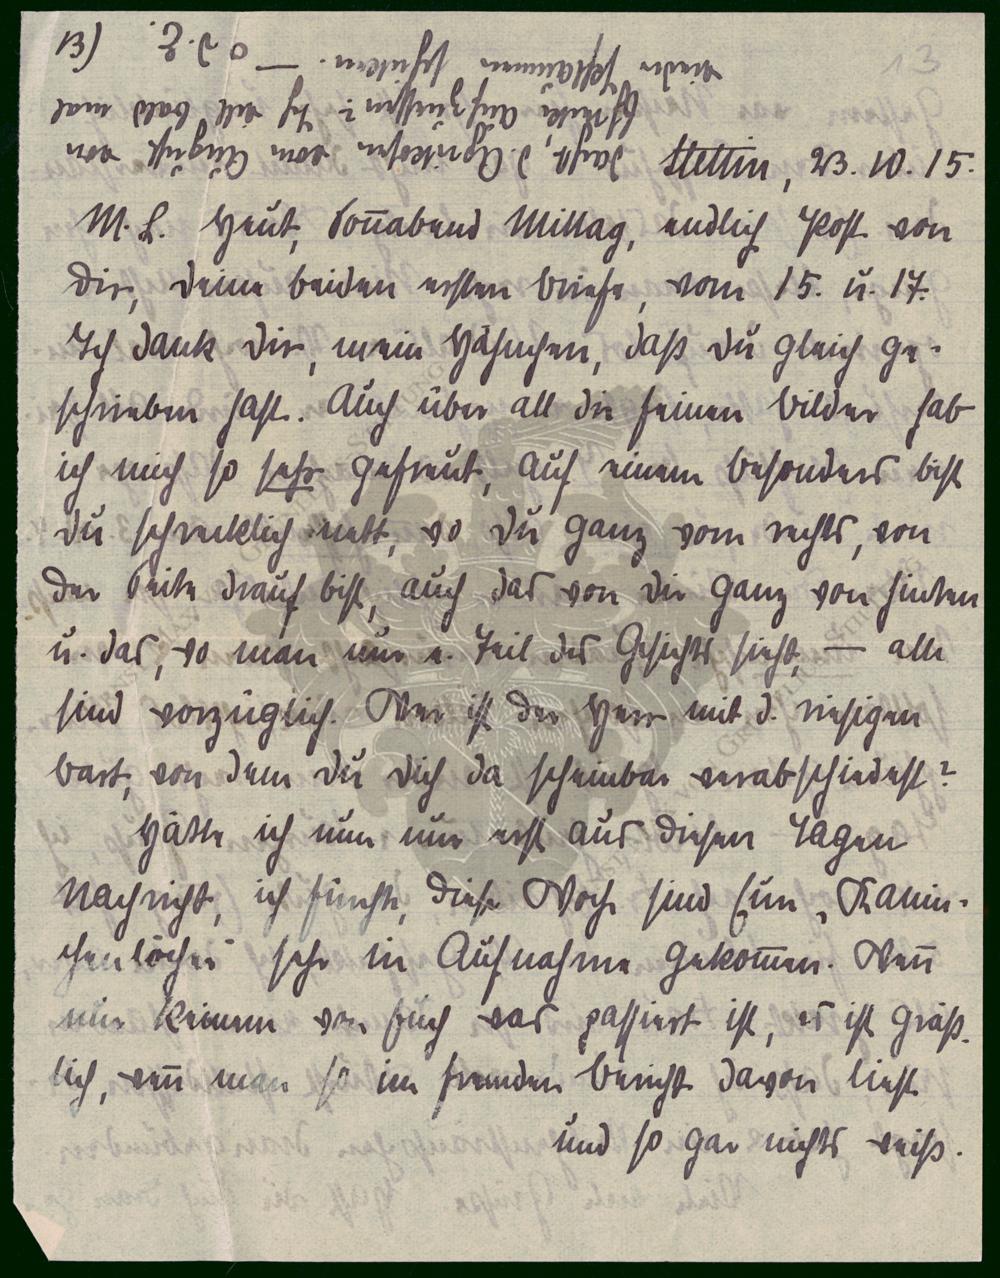 13)
Stettin, 23. 10. 15.
M. L. Heut, Soñabend Mittag, endlich Post von
dir, deine beiden ersten Briefe, vom 15. u. 17.
Ich dank dir, mein Hähnchen, daß du gleich ge-
schrieben hast. Auch über all die feinen Bilder hab
ich mich so sehr gefreut, auf einem besonders bist
du schrecklich nett, wo du ganz vorn rechts, von
der Seite drauf bist, auch das von dir ganz von hinten
u. das, wo man nur e. Teil des Gesichts sieht, — alle
sind vorzüglich. Wer ist der Herr mit d. riesigen
Bart, von dem du dich da scheinbar verabschiedest?
Hätte ich nun nur erst aus diesen Tagen
Nachricht, ich fürcht, diese Woch sind Eure „Kanin-
chenlöcher" sehr in Aufnahme gekom̄en. Wen̄
nur keinem von Euch was passiert ist, es ist gräß-
lich, wen̄ man so im fremden Bericht davon liest
und so gar nichts weiß.
daßt, d. Aprikosen vom August von
Ostrike aufzuessen? Ich will bald mal
wieder Pflaumen schicken. — O d. E.